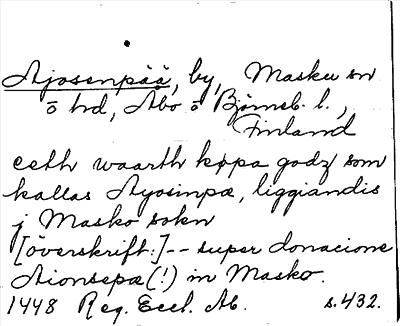 Ajosenpää, by, Masku sn
ö hd, Åbo o Björneb. l.,
Finland
eeth waarth køpa godz som
kallas Ayosinpæ, liggiandis
j Masko sokn
[överskrift:]-- super donacione
Aionsepæ(!) in Masko.
1448 Reg. Eccl. Ab. s. 432.